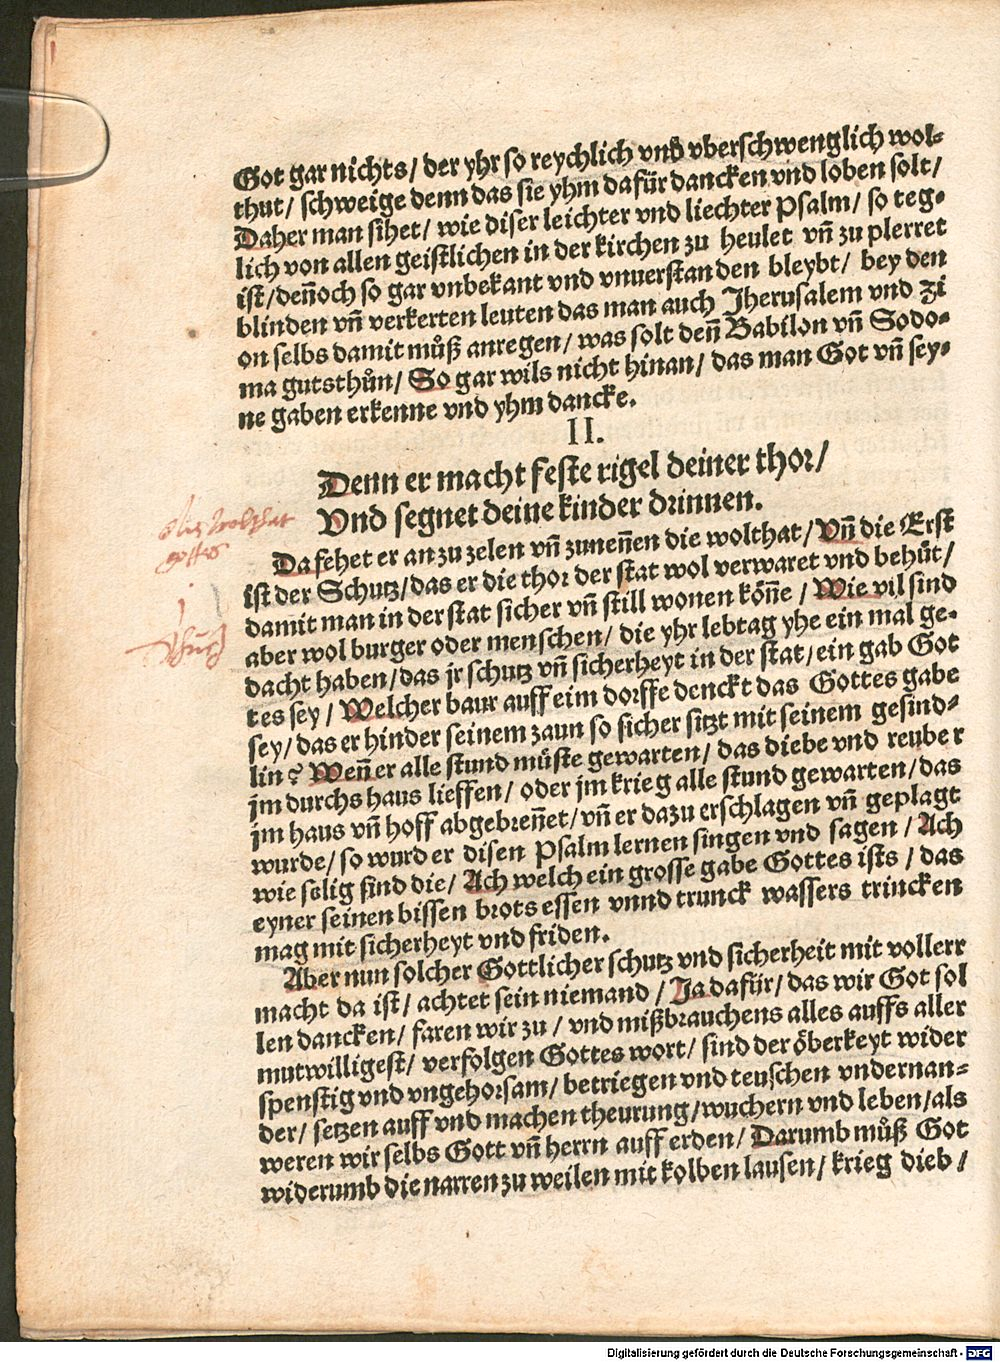 Got gar nichts/ der yhr so reychlich vnd vberschwenglich wol-
thut/ schweige denn das sie yhm dafür dancken vnd loben solt/
Daher man sihet/ wie diser leichter vnd liechter Psalm/ so teg-
lich von allen geistlichen in der kirchen zu heulet vñ zu plerret
ist/ deñoch so gar vnbekant vnd vnuerstanden bleybt/ bey den
blinden vñ verkerten leuten das man auch Jherusalem vnd Zi
on selbs damit můß anregen/ was solt deñ Babilon vñ Sodo-
ma gutsthůn/ So gar wils nicht hinan/ das man Got vñ sey-
ne gaben erkenne vnd yhm dancke.
II.
Denn er macht feste rigel deiner thor/
Vnd segnet deine kinder drinnen.
Da fehet er an zu zelen vñ zuneñen die wolthat/ Vñ die Erst
ist der Schutz/ das er die thor der stat wol verwaret vnd behüt/
damit man in der stat sicher vñ still wonen köñe/ Wie vil sind
aber wol burger oder menschen/ die yhr lebtag yhe ein mal ge-
dacht haben/ das jr schutz vñ sicherheyt in der stat/ ein gab Got
tes sey/ Welcher baur auff eim dorffe denckt das Gottes gabe
sey/ das er hinder seinem zaun so sicher sitzt mit seinem gesind-
lin? Weñ er alle stund müste gewarten/ das diebe vnd reuber
jm durchs haus lieffen/ oder jm krieg alle stund gewarten/ das
jm haus vñ hoff abgebreñet/ vñ er dazu erschlagen vñ geplagt
wurde/ so wurd er disen Psalm lernen singen vnd sagen/ Ach
wie selig sind die/ Ach welch ein grosse gabe Gottes ists/ das
eyner seinen bissen brots essen vnnd trunck wassers trincken
mag mit sicherheyt vnd friden.
Aber nun solcher Gottlicher schutz vnd sicherheit mit vollerr
macht da ist/ achtet sein niemand/ Ja dafür/ das wir Got sol
len dancken/ faren wir zu/ vnd mißbrauchens alles auffs aller
mutwilligest/ verfolgen Gottes wort/ sind der öberkeyt wider
spenstig vnd vngehorsam/ betriegen vnd teuschen vndernan-
der/ setzen auff vnd machen theurung/ wuchern vnd leben/ als
weren wir selbs Gott vñ herrn auff erden/ Darumb můß Got
widerumb die narren zu weilen mit kolben lausen/ krieg dieb/
wolthat
gottes
Digitalisierung gefördert durch die Deutsche Forschungsgemeinschaft - DFG